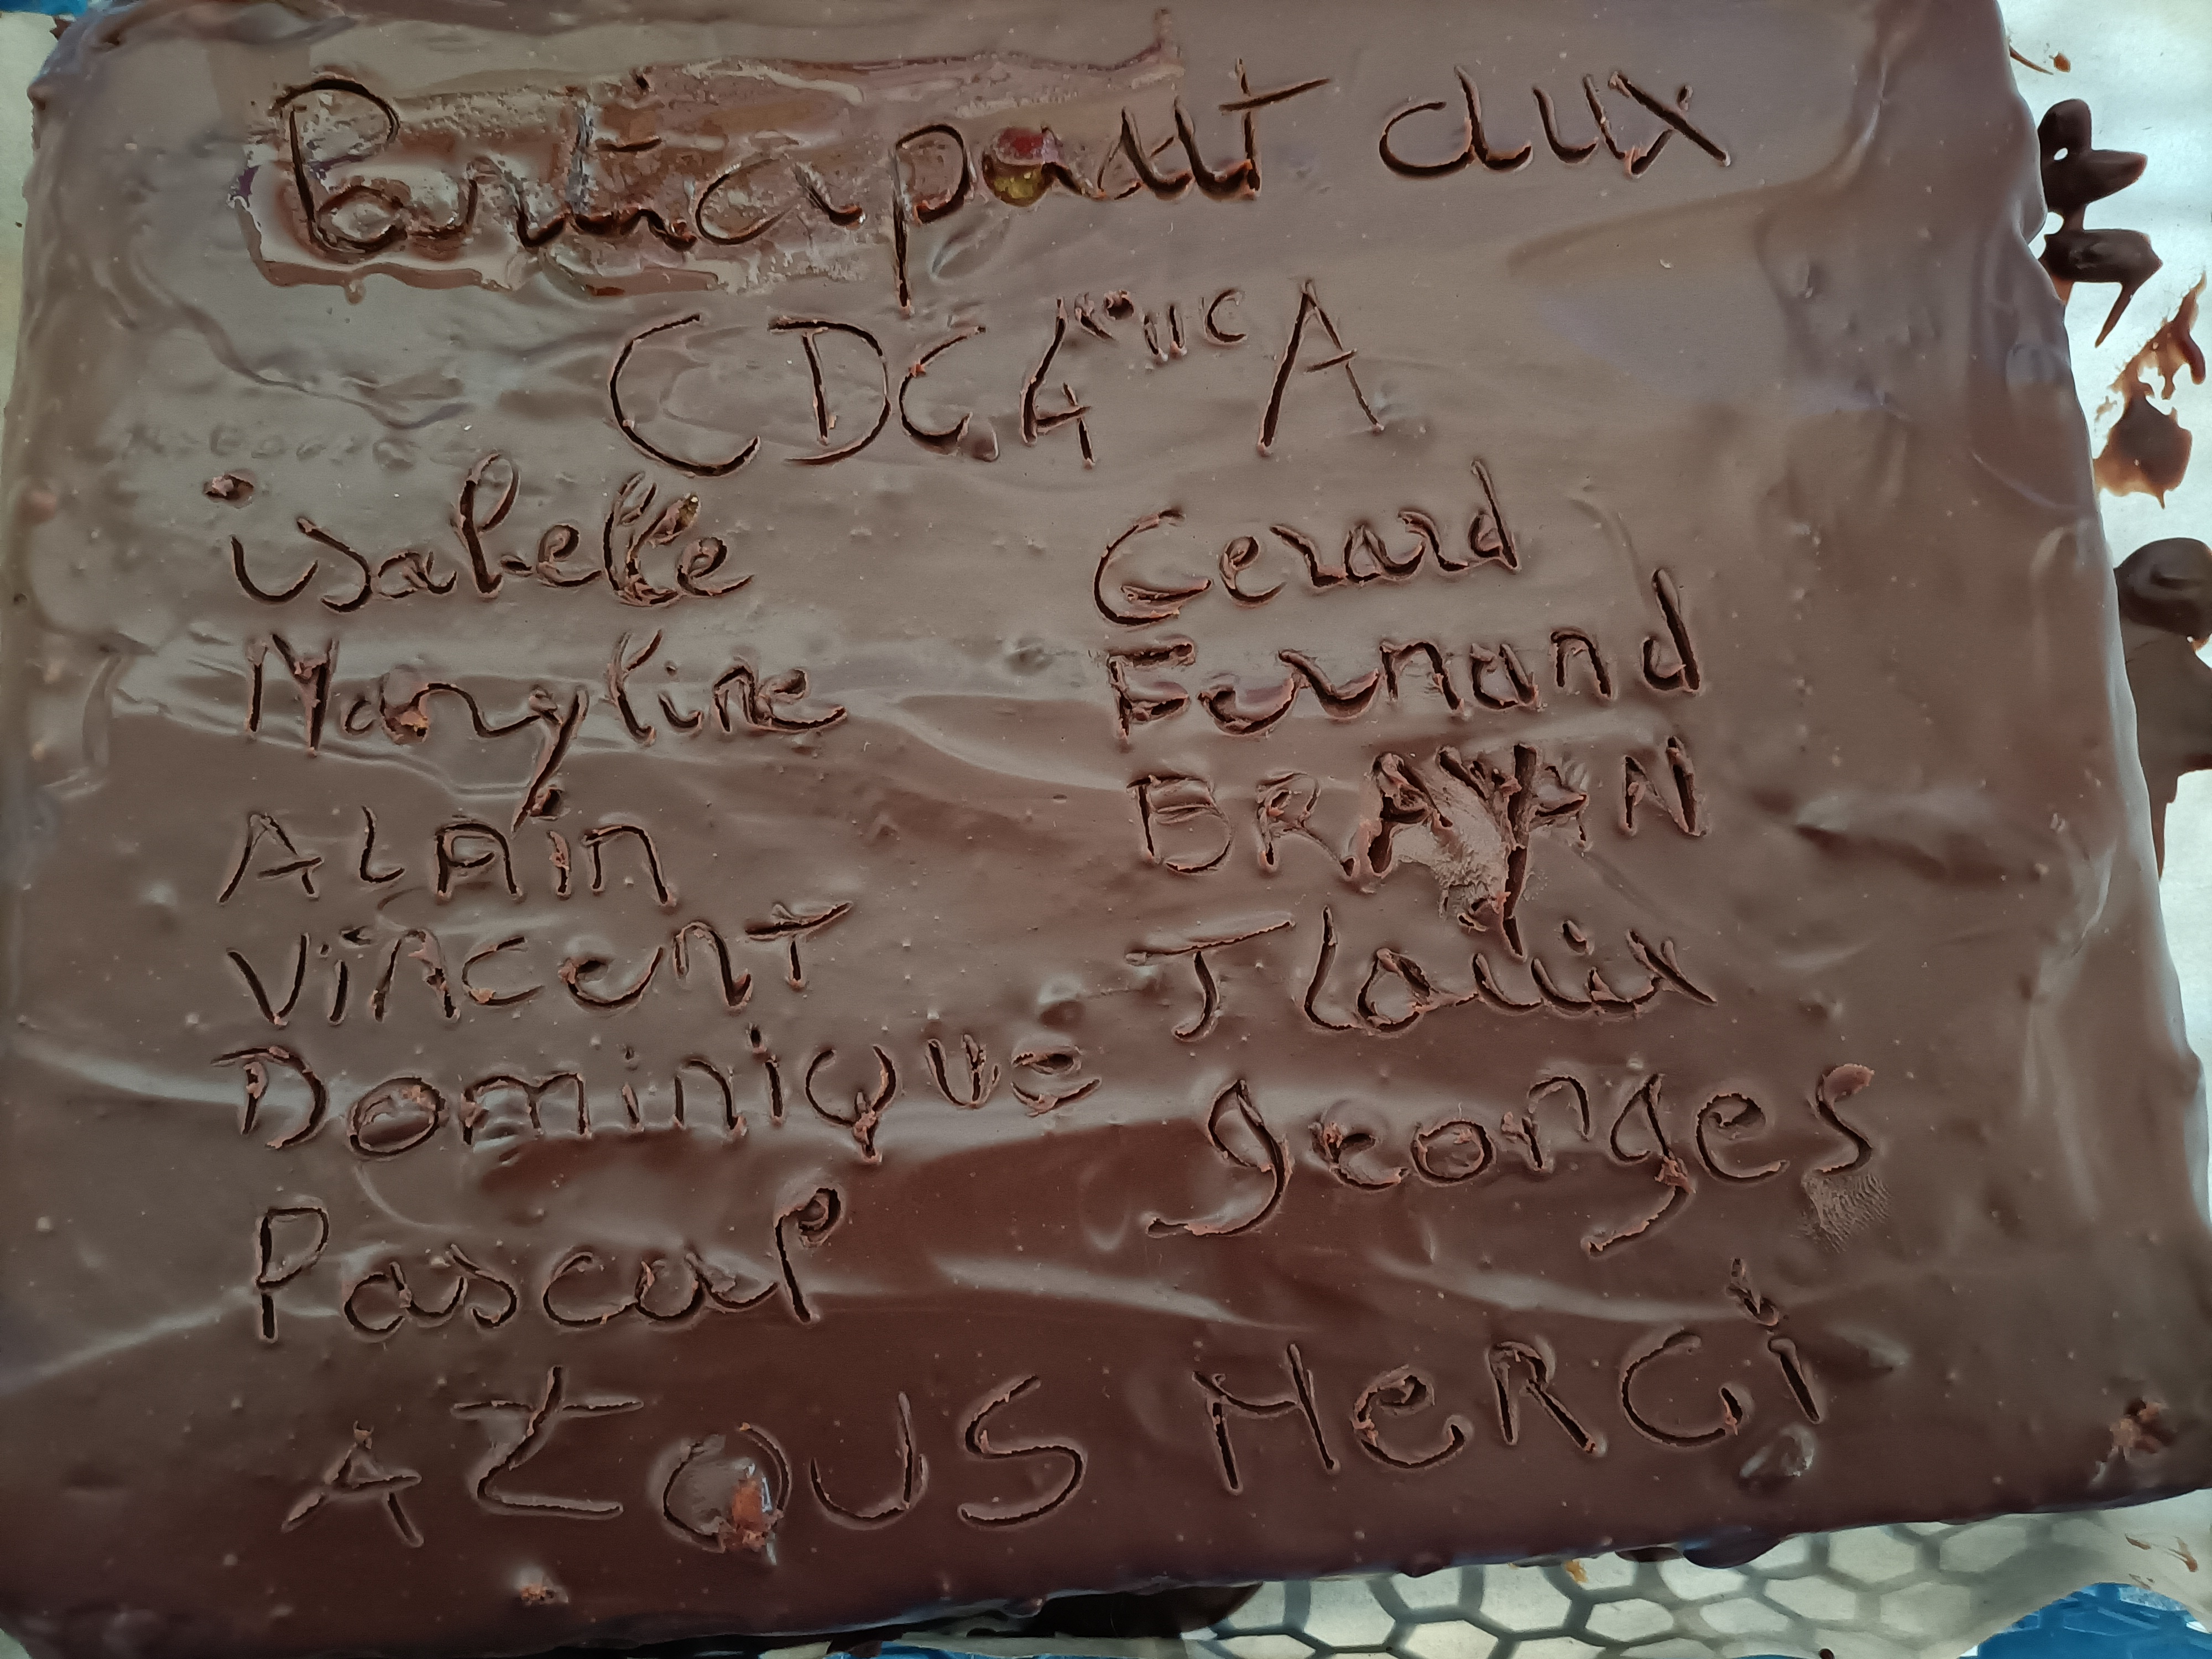 Participant aux
CDC 4ème A
isabelle
Maryline
ALAin
VincenT
DominiQue
Pascal
Gerard
Fernand
BRAYAN
J Louix
georges
A tOUS MeRCi